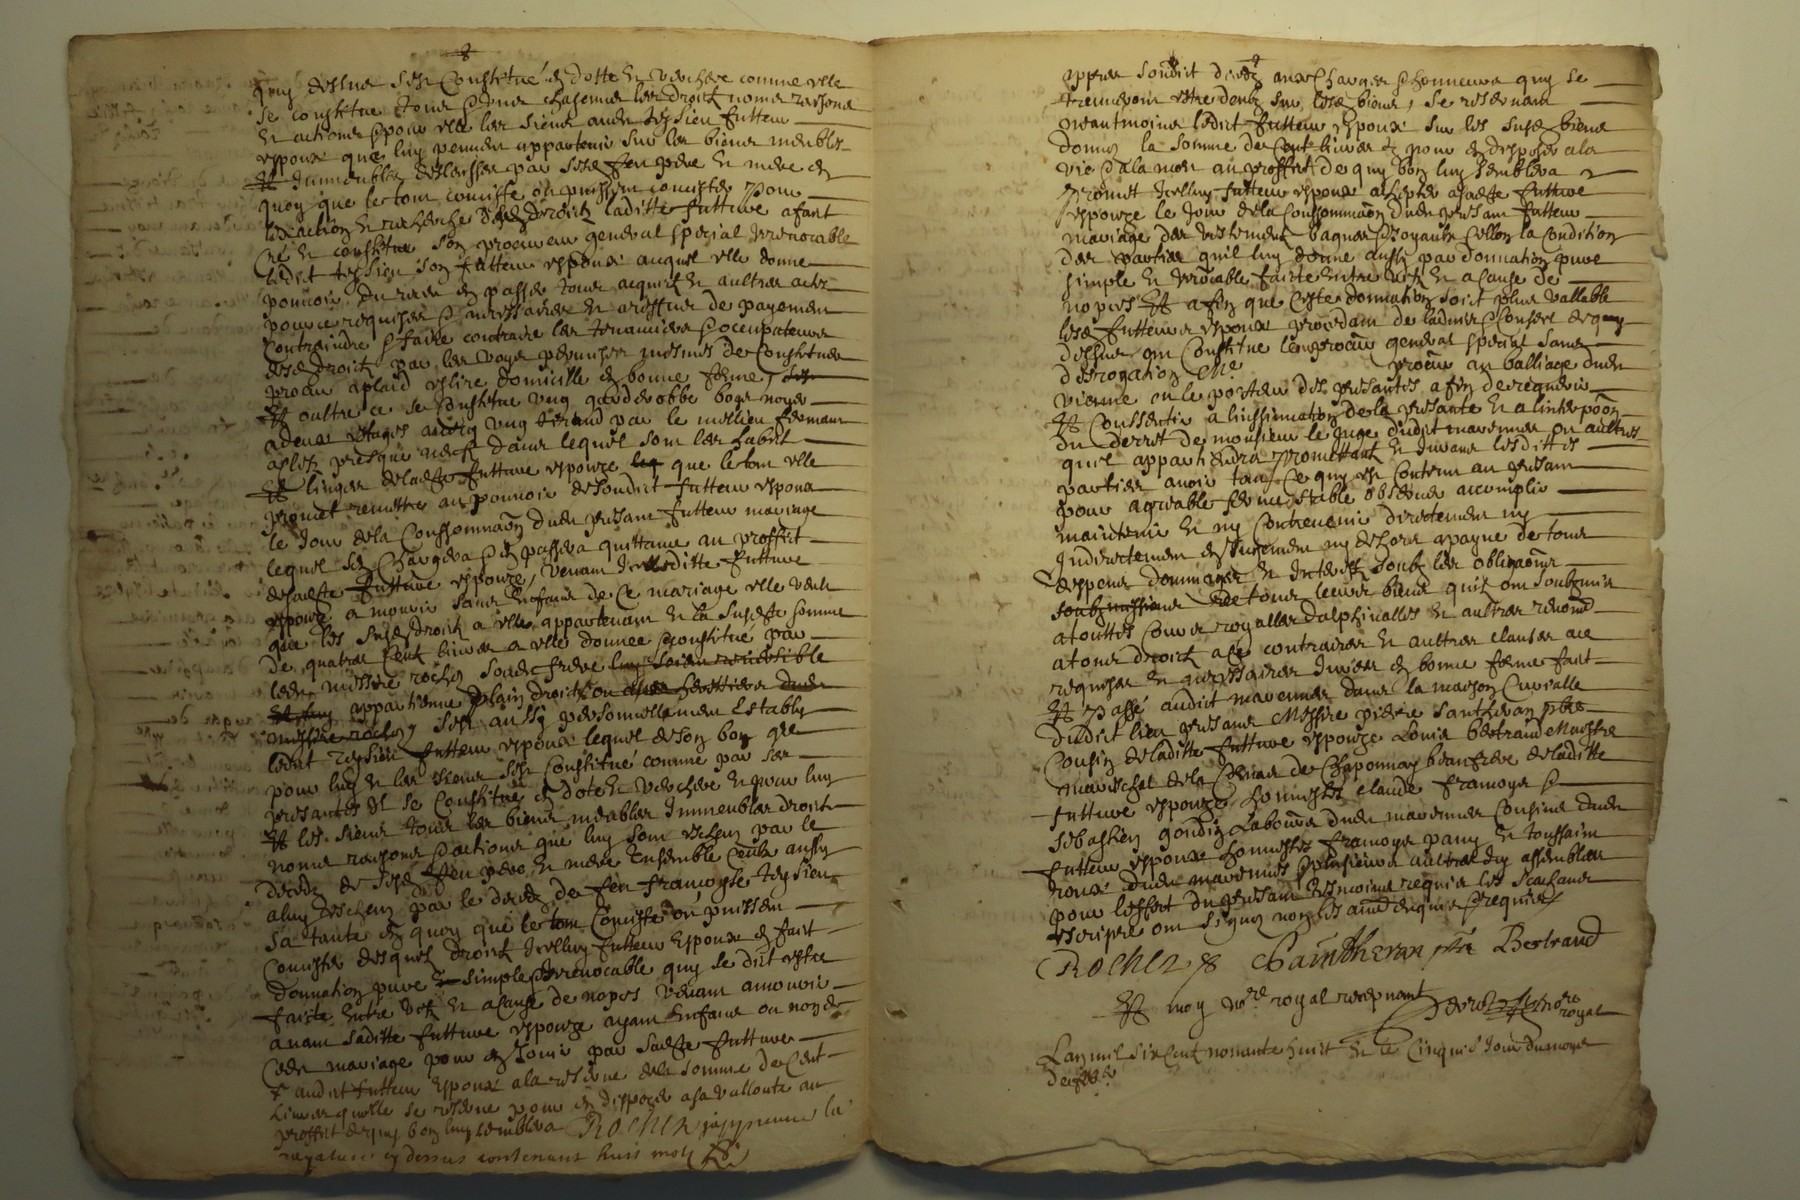 quy dessus sest Constitué en dotte et verchere comme elle
se constitue tous et ungs chascungs ses droictz noms raisons
et actions et pour elle les siens audit teysieu futteur
espoux que luy peuvent appartenir sur les biens meubles
et immeubles delaisses par sesd feu pere et mere en
quoy que le tout consiste ou puissent consister pour
lexaction et recherche desd droictz laditte futture a faict
cré et constitue son procureur general special irrevocable
ledict teysieu son futteur espoux auquel elle donne
pouvoir du receu en passer tous acquitz et aultres actes
pour ce requises et necessaires et a reffus de payement
contraindre et faire contraire les tenanciers et occupateurs
desd droictz par les voyes permises mesmes de constituer
procur a plaid eslire domicille en bonne forme
Et oultre ce se constitue ung garderobbe boys noyer
a deux estages avecq ung tirand par le millieu fermant
a clefz presque neufz dans lequel sont ses habits
et linges de ladicte futture espouze que le tout elle
promet remettre au pouvoir de sondict futteur espoux
le jour de la Conssommaõn dudit present futteur mariage
lequel sen chargera et en passera quittance au proffict
de ladicte futture espouze, venant icelle ditte futture
espouze a mourir sans enfans de ce mariage elle veult
que les susd droictz a elle appartenant et la susdicte somme
de quatre cent livres a elle donnée et constitué par
ledit messire rochez soudit frere luy soient reversible
et luy appartienne plain droict ou aux heritiers dudit
messire rochez sest aussy personnellement establly
ledict teysieu futteur espoux lequel de son bon gre
pour luy et les siens sest constitué comme par ses
presantes il se constitue en dote et verchere et pour luy
et les siens tous ses biens meubles immeubles droictz
noms raisons et actions que luy sont escheuz par le
decedz de sesd feu pere et mere ensemble ceulx aussy
a luy escheuz par le decedz de feu françoyse teysieu
sa tante en quoy que le tout consiste ou puissent
consister desquels droictz icelluy futteur espoux en faict
donnation pure et simple et irrevocable quy se dict estre
faicte entre vifz et a cause de nopces venant a mourir
avant saditte futture espouze ayant enfans ou non de
cedit mariage pour en jouir par sadicte futture
audict futteur espoux a la reserve de la somme de Cent
Livres quelle se reserve pour en disposer a sa vallonté au
proffict de quy bon luy semblera Rochez japreuve la
rayature cy dessus contenant huit motz
appres sondict decedz aux charges et honneurs quy se
treuveront estre deubz sur lesd biens, se reservant
neantmoins ledict futteur espoux sur les susd biens
donnes la somme de Cent livres pour en disposer a la
vie et a la mort au proffict de quy bon luy semblera
Promet icelluy futteur espoux achepter a ladicte futture
espouze le jour de la Conssommaõn dudit present futteur
mariage des vestemens bagues et joyaulx sellon la condition
des parties quil luy donne aussi par donnation pure
simple et irrevocable faicte entre vifz et a cause de
nopces Et a fin que ceste donnation soit plus vallable
lesd futteurs espoux procedant de ladvis et conseil de quy
dessus ont Constitue leur procur general special sans
desrogation Me procur au balliage dudit
vienne ou le porteur des presantes a fin de requerir
Et conssentir a linssinuation de la presante et a linterpõon
du decret de monsieur le Juge dudict marennes ou aultres
quil appartiendra promettant et jurant lesdittes
parties avoir tout ce quy est Contenu au present
pour agreable ferme et stable observer accomplir
maintenir et ny contrevenir directement ny
Indirectement en jugement ny dehors a payne de tous
despens dommages et interestz soubz les obligaõns
soubzmissions de tous leurs biens quilz ont soubzmis
a touttes Cours royalles dalphinalles et aultres renond
a tous droictz a ce contraires et aultres clauses a ce
requises et necessaires jurées en bonne forme faict
Et Passé audict marennes dans la maison Curialle
dudict lieu presans Messire pierre Sainthevan pbre
Cousin de laditte futture espouze Louis bertrand Maistre
mareschal de la de Chaponnay beaufrere de laditte
futture espouze honnestes claude françoys et
sebastien goudin Laboureur dudit marennes Cousins dudit
futteur espoux honnestes françoys pany et toussaint
roux dudit marennes et plusieurs aultres en assemblées
pour leffect du present tesmoins requis les scachans
escripre ont signez non les aultres enquis et requis
Rochez Sainthevan pbre Bertrand
Et moy nore royal recepvant nore royal
Lan mil six cent nonante huict et le Cinquie jour du moys
de febr